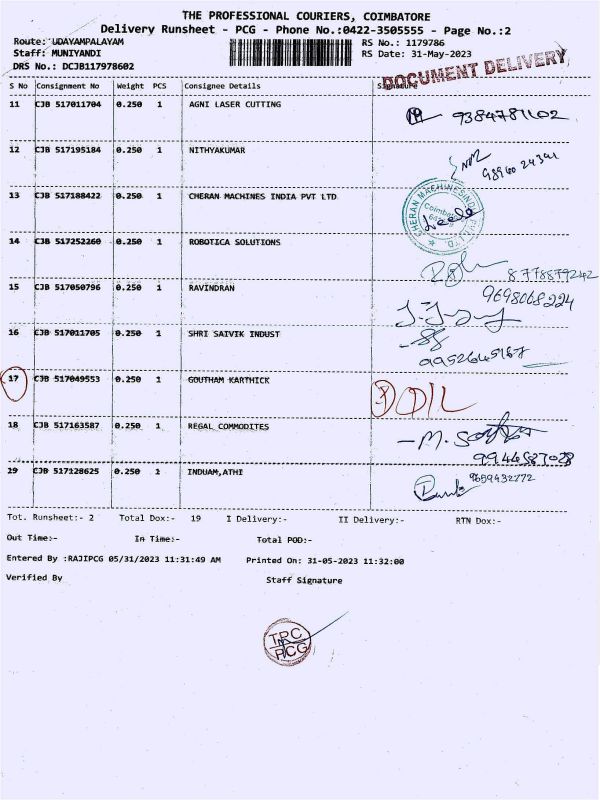 THE PROFESSIONAL COURIERS, COIMBATORE
Delivery Runsheet - PCG - Phone No.:0422-3505555 - Page No.:2
Route: UDAYAMPALAYAM
RS No.: 1179786
Staff: MUNIYANDI
RS Date: 31-May-2023
DRS No.: DCJB117978602
DOCUMENT DELIVERY
S No Consignment No Weight PCS Consignee Details Signature
11 CJB 517011704 0.250 1 AGNI LASER CUTTING 9384781102
12 CJB 517195184 0.250 1 NITHYAKUMAR
13 CJB 517188422 0.250 1 CHERAN MACHINES INDIA PVT LTD
14 CJB 517252260 0.250 1 ROBOTICA SOLUTIONS 8778879242
15 CJB 517050796 0.250 1 RAVINDRAN 9698068224
16 CJB 517011705 0.250 1 SHRI SAIVIK INDUST 9952645167
17 CJB 517049553 0.250 1 GOUTHAM KARTHICK
18 CJB 517163587 0.250 1 REGAL COMMODITES 9944587028
19 CJB 517128625 0.250 1 INDUAM,ATHI 9659432772
Tot. Runsheet:- 2 Total Dox:- 19 I Delivery:- II Delivery:- RTN Dox:-
Out Time:- In Time:- Total POD:-
Entered By :RAJIPCG 05/31/2023 11:31:49 AM Printed On: 31-05-2023 11:32:00
Verified By Staff Signature
TPC
PCG